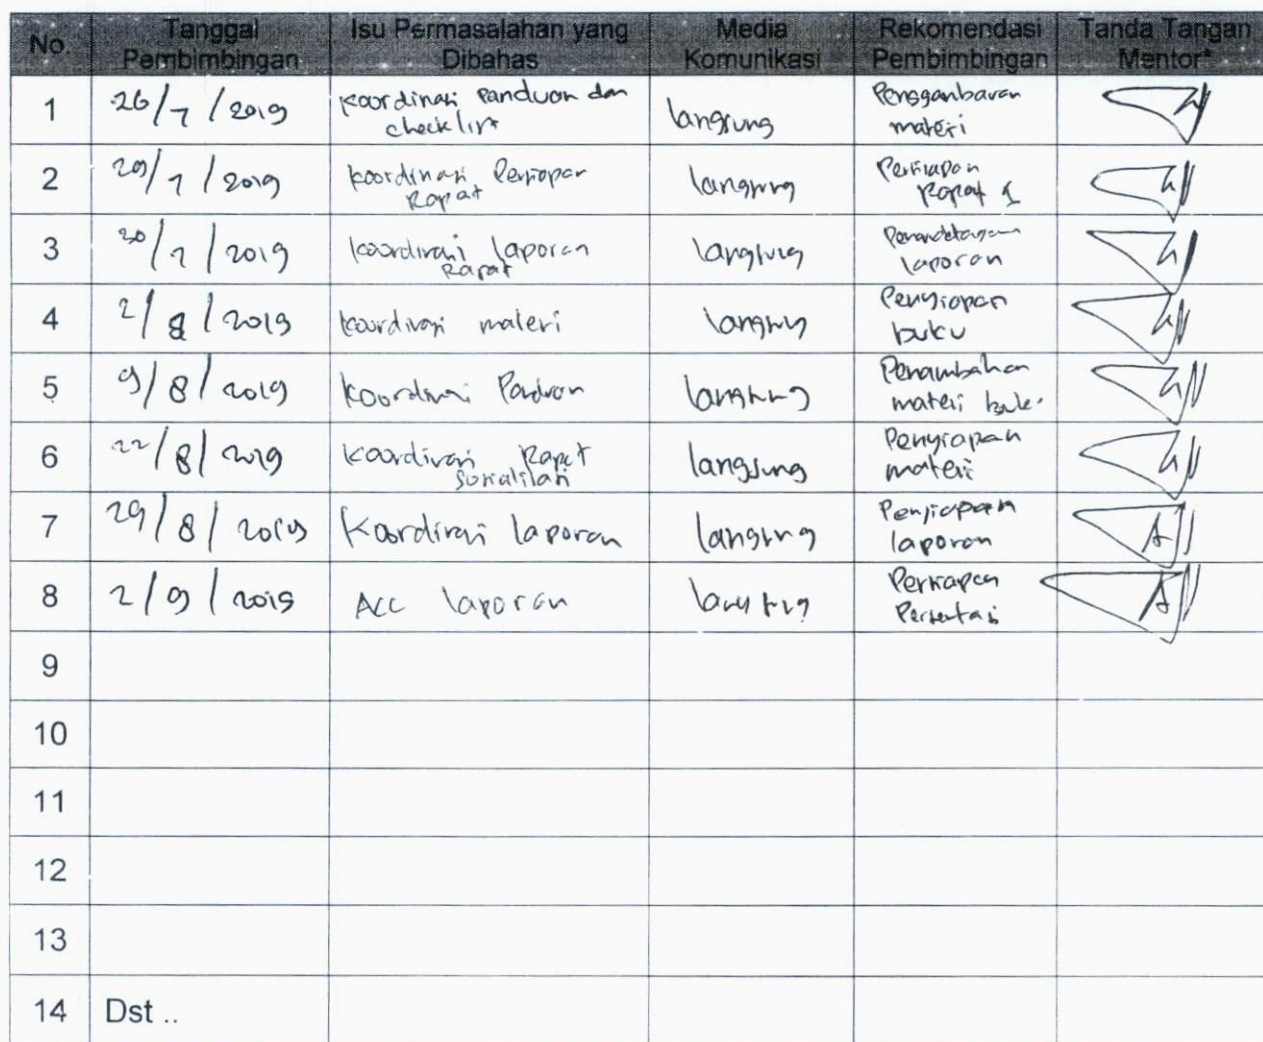 No. Tanggal Pembimbingan Isu Permasalahan yang Dibahas Media Komunikasi Rekomendasi Pembimbingan Tanda Tangan Mentor*
1 26/7/2019 Koordinasi Panduan dan checklist langsung Penggambaran materi
2 29/7/2019 Koordinasi Persiapan Rapat langsung Persiapan Rapat 1
3 30/7/2019 Koordinasi laporan Rapat langsung Penandatangan laporan
4 2/8/2019 Koordinasi materi langsung Penyiapan buku
5 9/8/2019 Koordinasi Panduan langsung Penambahan materi buku
6 22/8/2019 Koordinasi Rapat Sosialisasi langsung Penyiapan materi
7 29/8/2019 Koordinasi laporan langsung Penyiapan laporan
8 2/9/2019 Acc laporan langsung Persiapan Persentasi
9
10
11
12
13
14 Dst ..